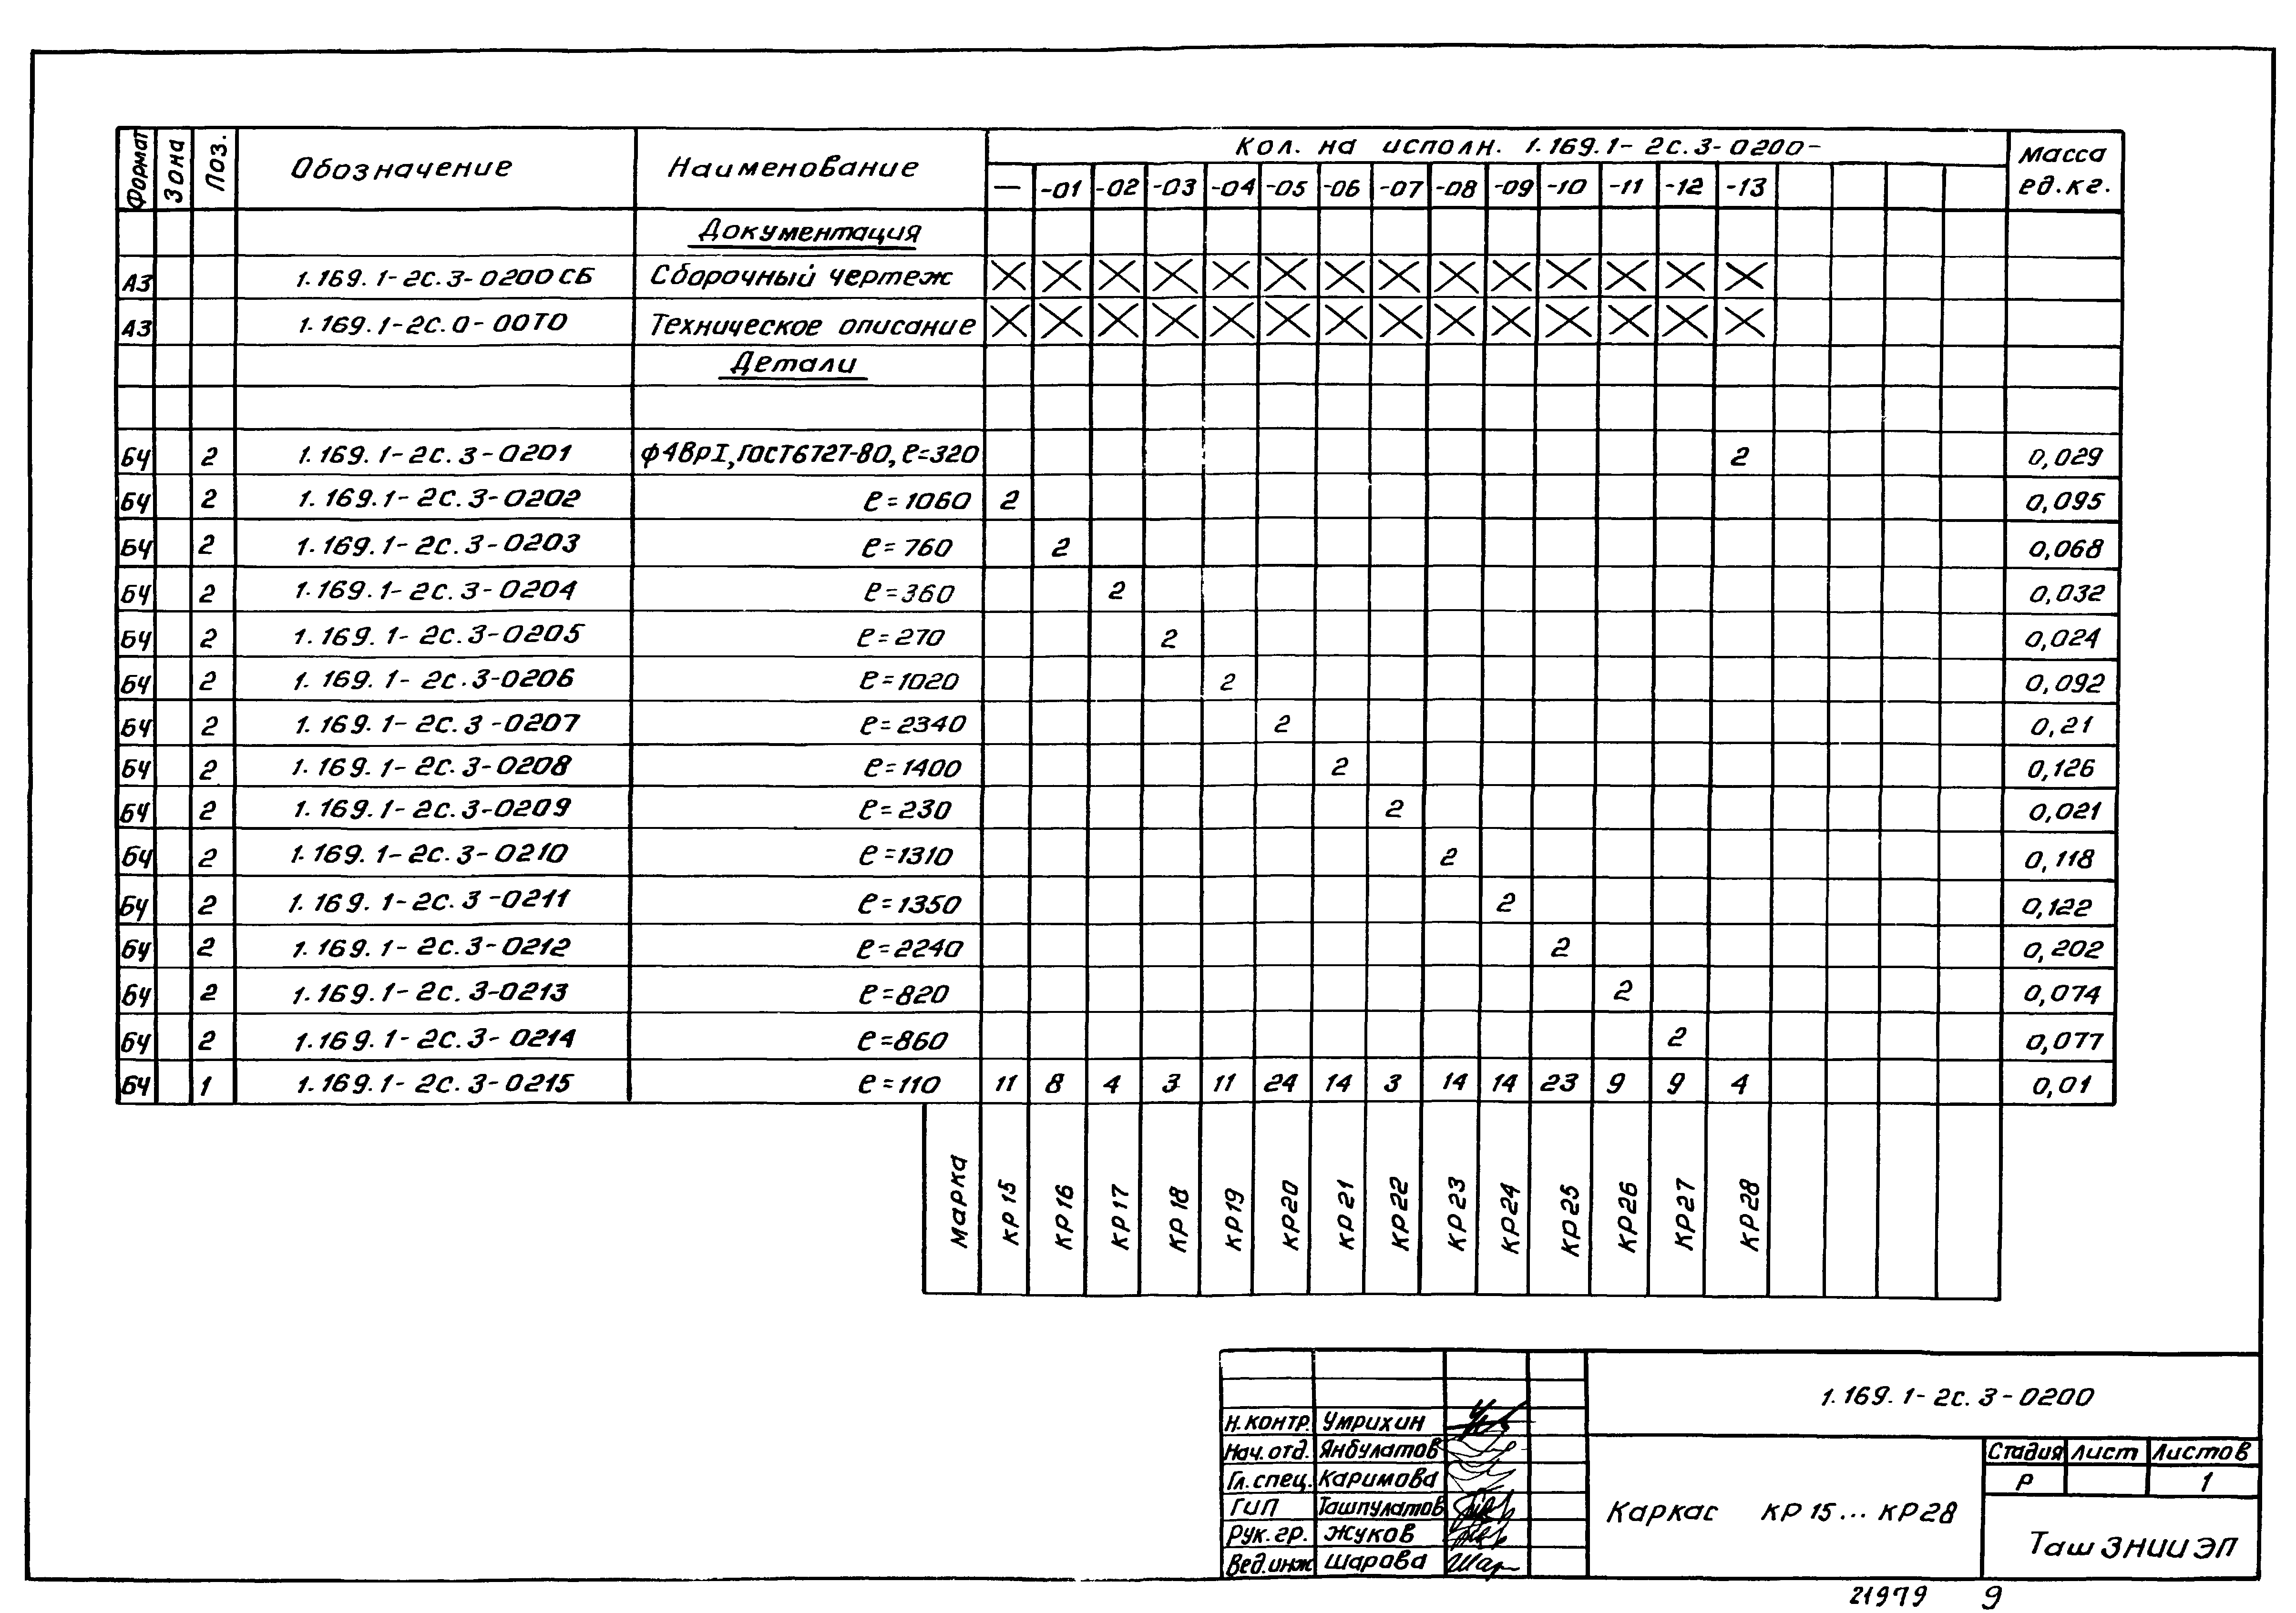 Формат Зона Поз. Обозначение Наименование Кол. на исполн. 1.169.1-2с.3-0200- Масса ед.кг.
— -01 -02 -03 -04 -05 -06 -07 -08 -09 -10 -11 -12 -13
Документация
А3 1.169.1-2с.3-0200СБ Сборочный чертеж
А3 1.169.1-2с.0-00ТО Техническое описание
Детали
БЧ 2 1.169.1-2с.3-0201 ф4ВрI, ГОСТ6727-80, ℓ=320 2 0,029
БЧ 2 1.169.1-2с.3-0202 ℓ=1060 2 0,095
БЧ 2 1.169.1-2с.3-0203 ℓ=760 2 0,068
БЧ 2 1.169.1-2с.3-0204 ℓ=360 2 0,032
БЧ 2 1.169.1-2с.3-0205 ℓ=270 2 0,024
БЧ 2 1.169.1-2с.3-0206 ℓ=1020 2 0,092
БЧ 2 1.169.1-2с.3-0207 ℓ=2340 2 0,21
БЧ 2 1.169.1-2с.3-0208 ℓ=1400 2 0,126
БЧ 2 1.169.1-2с.3-0209 ℓ=230 2 0,021
БЧ 2 1.169.1-2с.3-0210 ℓ=1310 2 0,118
БЧ 2 1.169.1-2с.3-0211 ℓ=1350 2 0,122
БЧ 2 1.169.1-2с.3-0212 ℓ=2240 2 0,202
БЧ 2 1.169.1-2с.3-0213 ℓ=820 2 0,074
БЧ 2 1.169.1-2с.3-0214 ℓ=860 2 0,077
БЧ 1 1.169.1-2с.3-0215 ℓ=110 11 8 4 3 11 24 14 3 14 14 23 9 9 4 0,01
Марка КР15 КР16 КР17 КР18 КР19 КР20 КР21 КР22 КР23 КР24 КР25 КР26 КР27 КР28
1.169.1-2с.3-0200
Н.контр. Умрихин
Нач.отд. Янбулатов
Гл.спец. Каримова
ГИП Ташпулатов
Рук.гр. Жуков
Вед.инж Шарова
Каркас КР15...КР28
Стадия Лист Листов
Р 1
ТашЗНИИЭП
21979 9